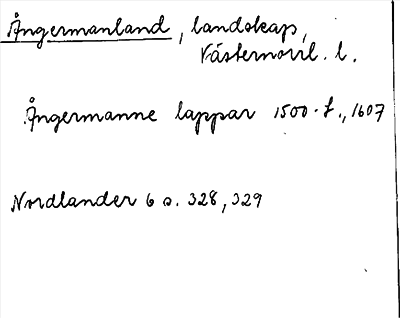 Ångermanland, landskap,
Västernorrl. l.
Ångermanne lappar 1500-t., 1607
Nordlander 6 s. 328, 329